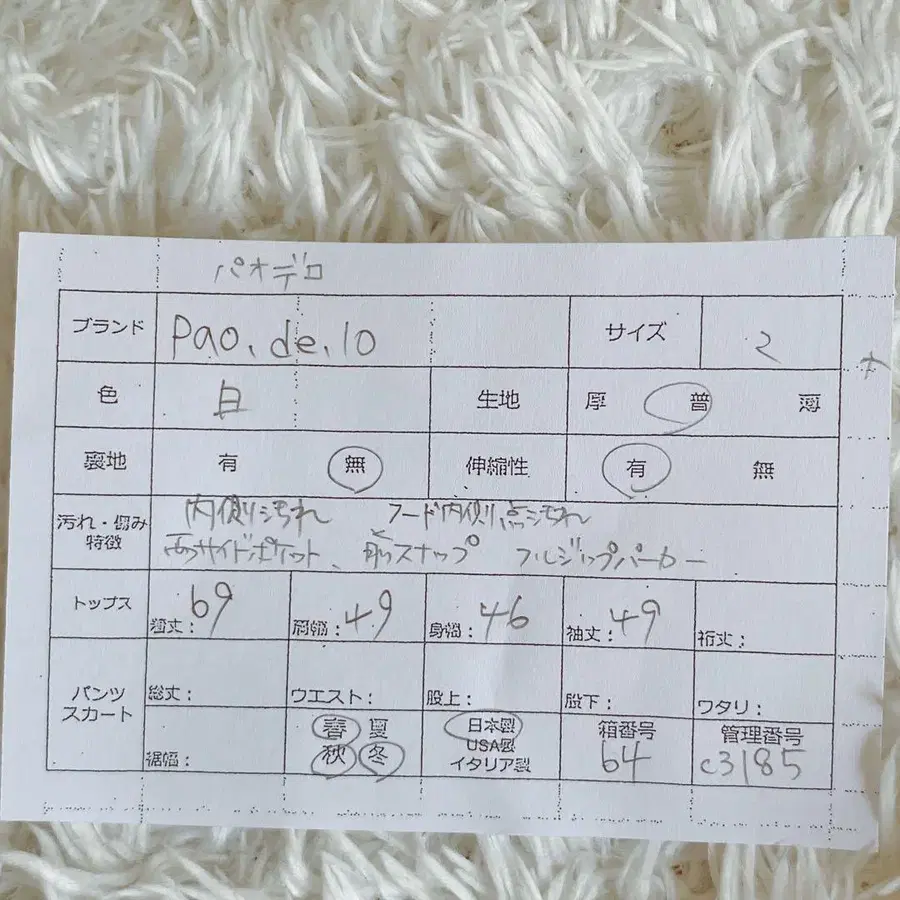 パオデロ
ブランド pao.de.lo サイズ 2
色 白 生地 厚 普 薄
裏地 有 無 伸縮性 有 無
汚れ・傷み 内側汚れ フード内側点汚れ
特徴 両サイドポケット、前スナップ フルジップパーカー
トップス 着丈: 69 肩幅: 49 身幅: 46 袖丈: 49 裄丈:
パンツ 総丈: ウエスト: 股上: 股下: ワタリ:
スカート 裾幅: 春 夏 日本製 箱番号 管理番号
秋 冬 USA製 64 c3185
イタリア製